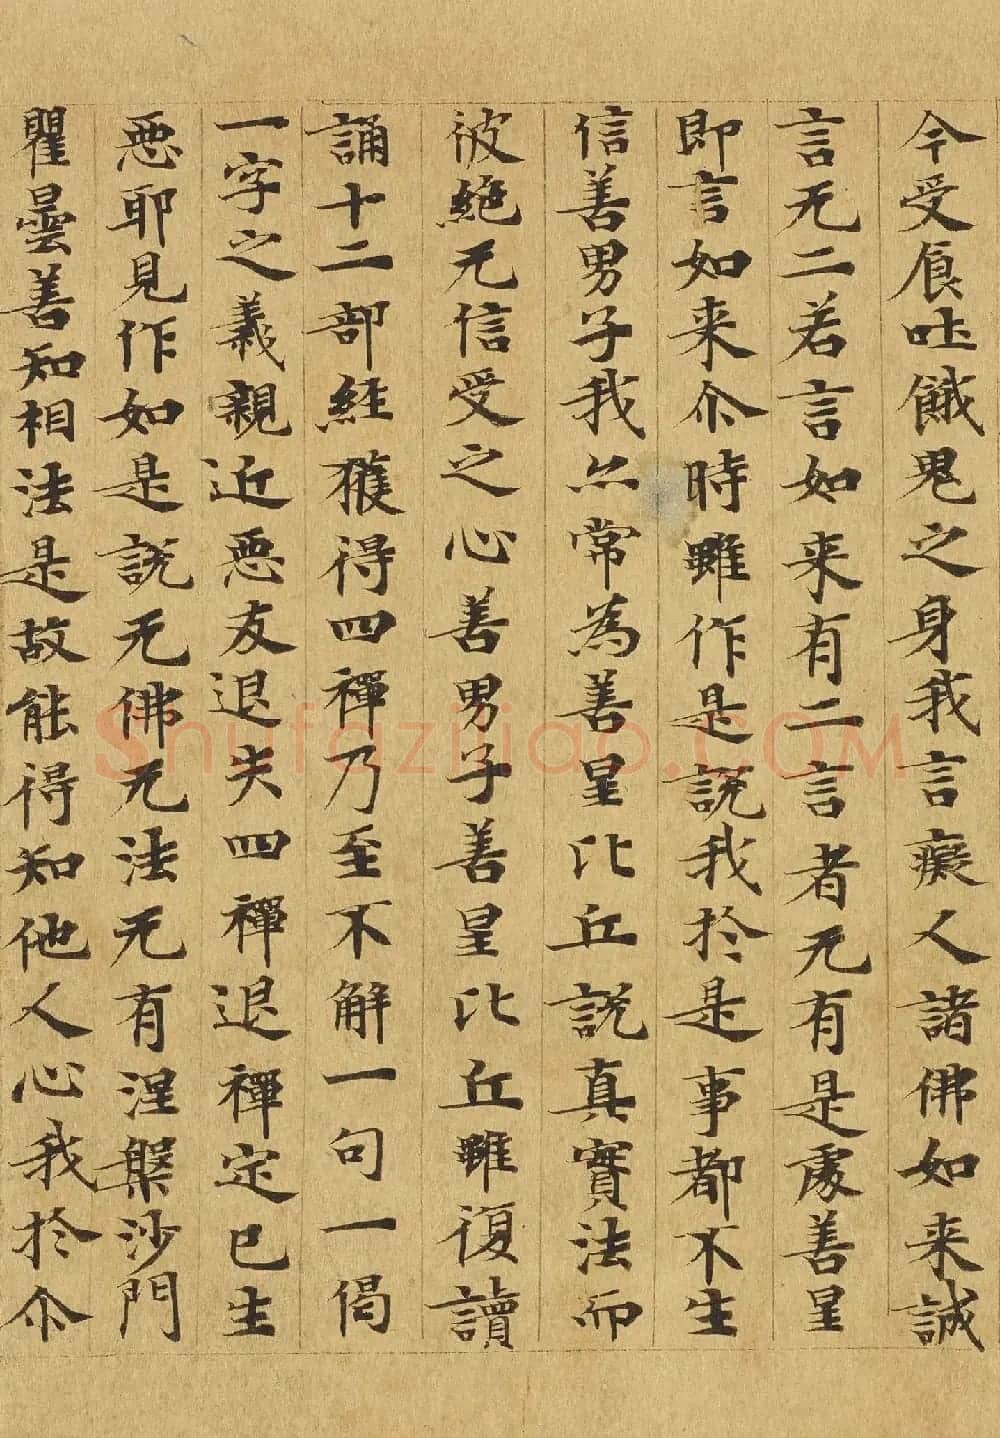 今受食吐餓鬼之身我言癡人諸佛如来誠
言无二若言如来有二言者无有是處善星
即言如来尒時雖作是說我於是事都不生
信善男子我亦常為善星比丘說真實法而
彼絕无信受之心善男子善星比丘雖復讀
誦十二部經獲得四禪乃至不解一句一偈
一字之義親近惡友退失四禪退禪定已生
惡耶見作如是說无佛无法无有涅槃沙門
瞿曇善知相法是故能得知他人心我於尒
Shufaziliao.COM